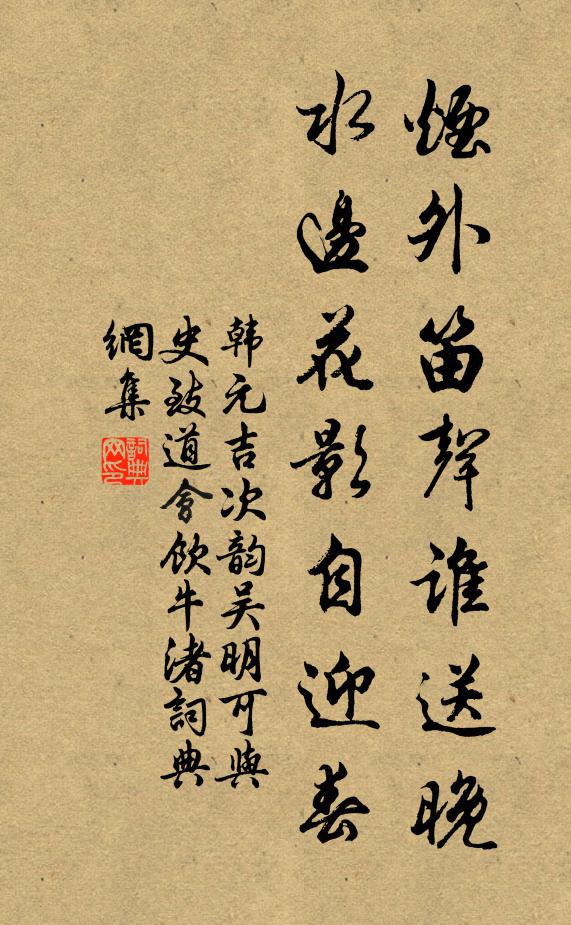 煙外笛聲誰送晚
水邊花影自迎春
韩元吉次韵吴明可與
史致道會飲牛渚詞典
網集
詞典
网印